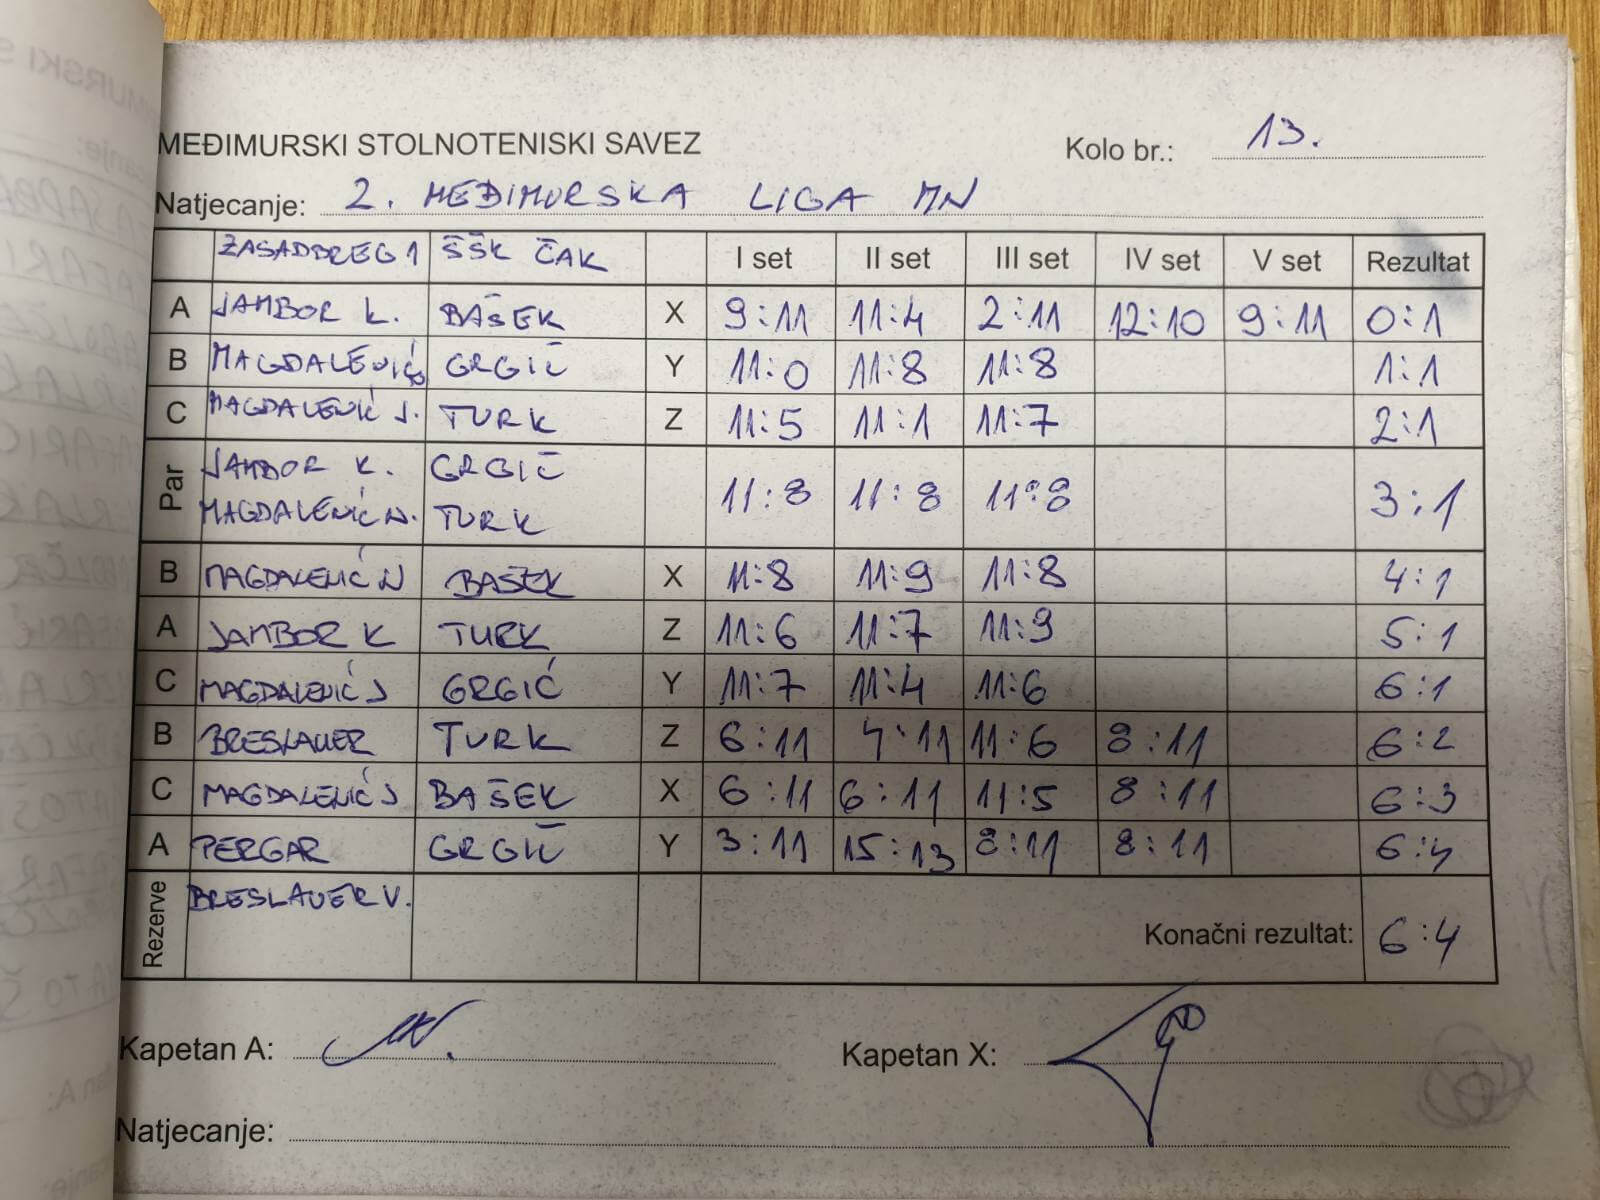 MEĐIMURSKI STOLNOTENISKI SAVEZ
Kolo br.: 13.
Natjecanje: 2. MEĐIMURSKA LIGA MN
ZASADBREG 1 ŠŠK ČAK I set II set III set IV set V set Rezultat
A JAMBOR K. BAŠEK X 9:11 11:4 2:11 12:10 9:11 0:1
B MAGDALENIĆ GRGIĆ Y 11:0 11:8 11:8 1:1
C MAGDALENIĆ J. TURK Z 11:5 11:1 11:7 2:1
Par JAMBOR K. GRGIĆ 11:8 11:8 11:8 3:1
MAGDALENIĆ N. TURK
B MAGDALENIĆ N BAŠEK X 11:8 11:9 11:8 4:1
A JAMBOR K TURK Z 11:6 11:7 11:9 5:1
C MAGDALENIĆ J GRGIĆ Y 11:7 11:4 11:6 6:1
B BRESLAUER TURK Z 6:11 4:11 11:6 8:11 6:2
C MAGDALENIĆ J BAŠEK X 6:11 6:11 11:5 8:11 6:3
A PERGAR GRGIĆ Y 3:11 15:13 8:11 8:11 6:4
Rezerve BRESLAUER V. Konačni rezultat: 6:4
Kapetan A: Kapetan X:
Natjecanje: